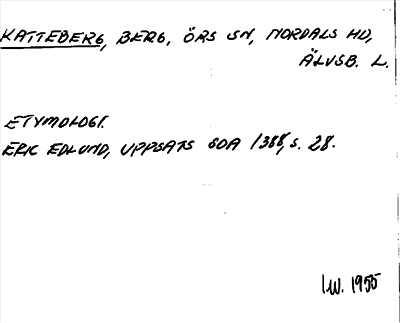 KATTEBERG, BERG, ÖRS SN, NORDALS HD,
ÄLVSB. L.
ETYMOLOGI.
ERIC EDLUND, UPPSATS GDA 1388, S. 28.
I.W. 1955